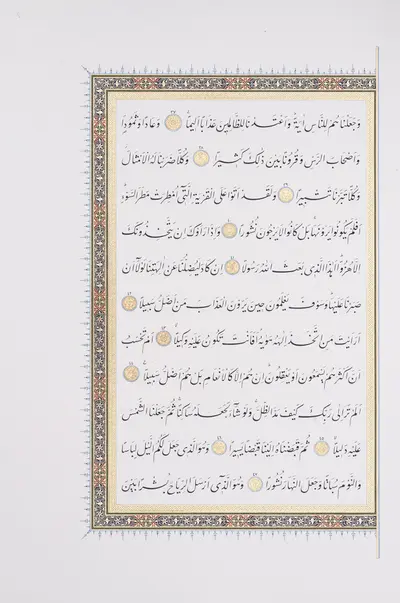 وَجَعَلْنَاهُمْ لِلنَّاسِ اٰيَةً وَاَعْتَدْنَا لِلظَّالِمِينَ عَذَابًا اَلِيمًا وَعَادًا وَثَمُودَا۬
وَاَصْحَابَ الرَّسِّ وَقُرُونًا بَيْنَ ذٰلِكَ كَثِيرًا وَكُلًّا ضَرَبْنَا لَهُ الْاَمْثَالَ
وَكُلًّا تَبَّرْنَا تَتْبِيرًا وَلَقَدْ اَتَوْا عَلَى الْقَرْيَةِ الَّتِي اُمْطِرَتْ مَطَرَ السَّوْءِ
اَفَلَمْ يَكُونُوا يَرَوْنَهَا بَلْ كَانُوا لَا يَرْجُونَ نُشُورًا وَاِذَا رَاَوْكَ اِنْ يَتَّخِذُونَكَ
اِلَّا هُزُوًا اَهٰذَا الَّذِي بَعَثَ اللّٰهُ رَسُولًا اِنْ كَادَ لَيُضِلُّنَا عَنْ اٰلِهَتِنَا لَوْلَا اَنْ
صَبَرْنَا عَلَيْهَا وَسَوْفَ يَعْلَمُونَ حِينَ يَرَوْنَ الْعَذَابَ مَنْ اَضَلُّ سَبِيلًا
اَرَاَيْتَ مَنِ اتَّخَذَ اِلٰهَهُ هَوٰيهُ اَفَاَنْتَ تَكُونُ عَلَيْهِ وَكِيلًا اَمْ تَحْسَبُ
اَنَّ اَكْثَرَهُمْ يَسْمَعُونَ اَوْ يَعْقِلُونَ اِنْ هُمْ اِلَّا كَالْاَنْعَامِ بَلْ هُمْ اَضَلُّ سَبِيلًا
اَلَمْ تَرَ اِلٰى رَبِّكَ كَيْفَ مَدَّ الظِّلَّ وَلَوْ شَاءَ لَجَعَلَهُ سَاكِنًا ثُمَّ جَعَلْنَا الشَّمْسَ
عَلَيْهِ دَلِيلًا ثُمَّ قَبَضْنَاهُ اِلَيْنَا قَبْضًا يَسِيرًا وَهُوَ الَّذِي جَعَلَ لَكُمُ الَّيْلَ لِبَاسًا
وَالنَّوْمَ سُبَاتًا وَجَعَلَ النَّهَارَ نُشُورًا وَهُوَ الَّذِي اَرْسَلَ الرِّيَاحَ بُشْرًا بَيْنَ